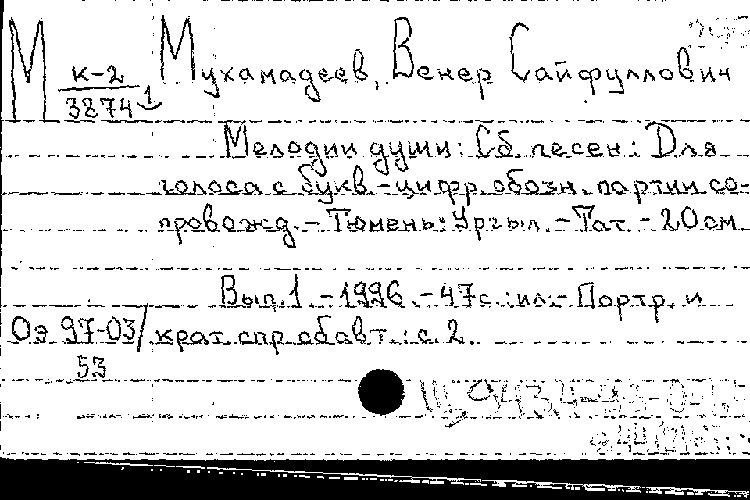 М к-2 / 38741
Мухамадеев, Венер Сайфуллович
Мелодии души: Сб. песен: Для
голоса с букв.-цифр. обозн. партии со-
провожд. - Тюмень: Ургыл. - Тат. - 20 см
Вып. 1. - 1996. - 47 с.: ил. - Портр. и
Оэ 97-03/ крат. спр. об авт.: с. 2.
53